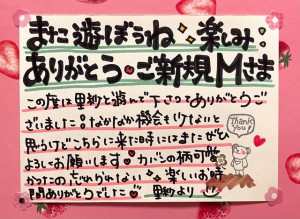 また遊ぼうね 楽しみ
ありがとう ご新規Mさま
この度は里紗と遊んで下さってありがとうご
ざいました！なかなか機会をりないと
思うけどこちらに来た時にはまたぜひ
よろしくお願いします カバンの柄可愛
かったの 忘れられない 楽しいお時
間ありがとうでした 里紗より
Thank you!